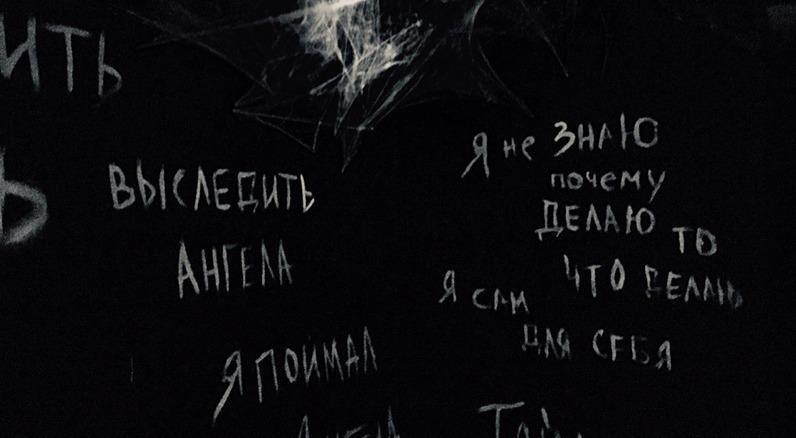 ИТЬ
Ь
ВЫСЛЕДИТЬ
АНГЕЛА
Я ПОИМАЛ
Я не ЗНАЮ
почему
ДЕЛАЮ ТО
ЧТО ДЕЛАЮ
Я САМ
ДЛЯ СЕБЯ